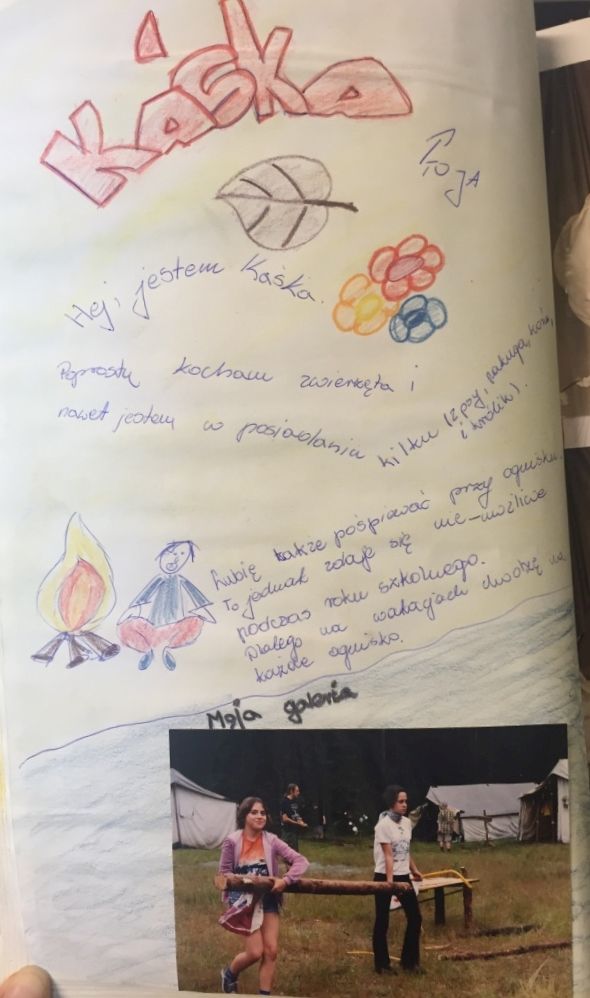 Kaśka
To JA
Hej, jestem Kaśka.
Poprostu kocham zwierzęta i
nawet jestem w posiadaniu kilku (2 psy, papuga, koza,
i królik).
Lubię także pośpiewać przy ognisku.
To jednak zdaje się nie-możliwe
podczas roku szkolnego.
Dlatego na wakacjach chodzę na
każde ognisko.
Moja galeria